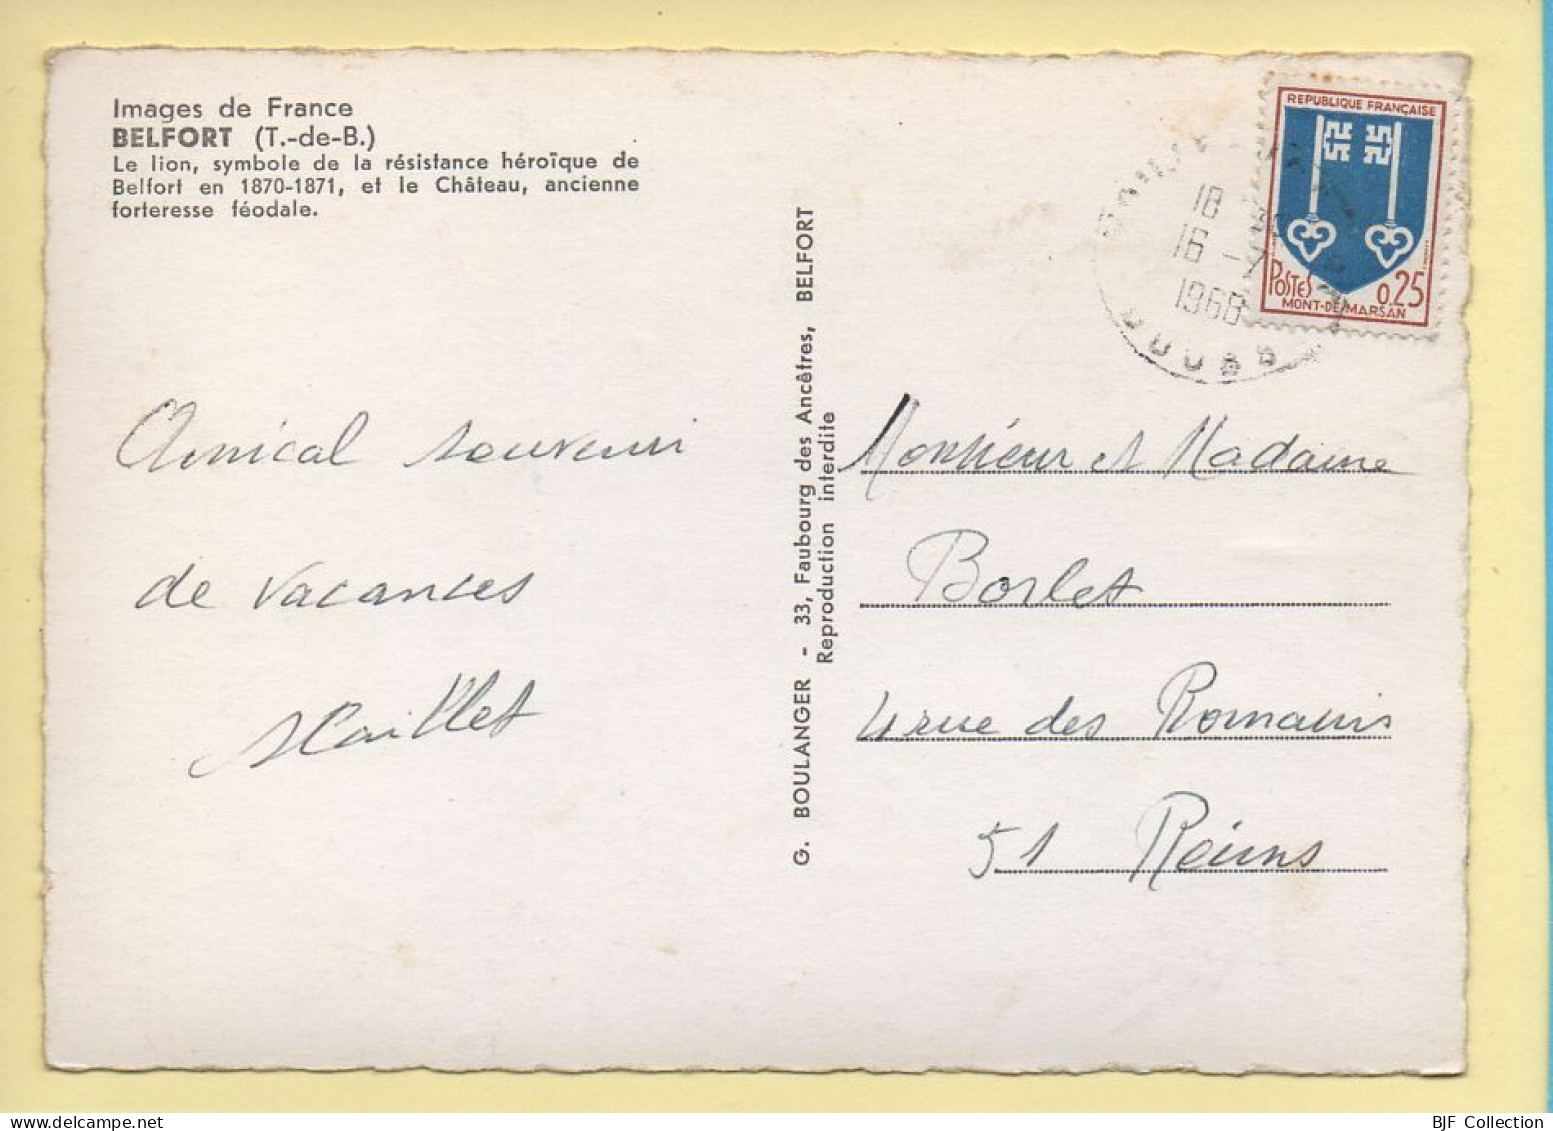 Images de France
BELFORT (T.-de-B.)
Le lion, symbole de la résistance héroïque de
Belfort en 1870-1871, et le Château, ancienne
forteresse féodale.
Amical souvenir
de vacances
Maillet
G. BOULANGER - 33, Faubourg des Ancêtres, BELFORT
Reproduction interdite
REPUBLIQUE FRANÇAISE
POSTES 0,25
MONT-DE-MARSAN
18
16 -7
1968
DOUBS
Monsieur et Madame
Borlet
4 rue des Romains
51 Reims
BJF Collection